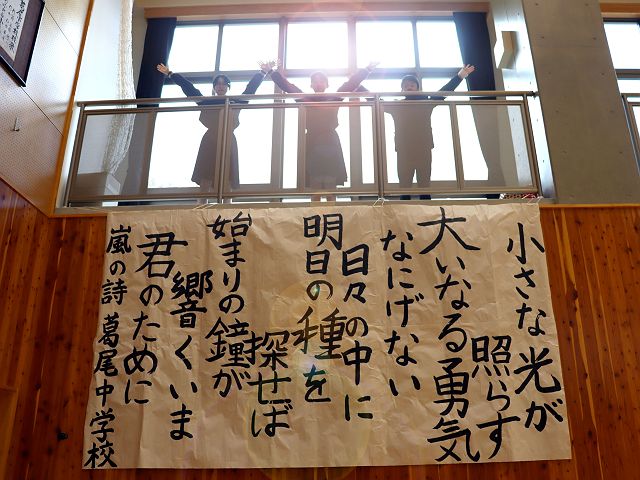 小さな光が
照らす
大いなる勇気
なにげない
日々の中に
明日の種を
探せば
始まりの鐘が
響くいま
君のために
嵐の詩 葛尾中学校